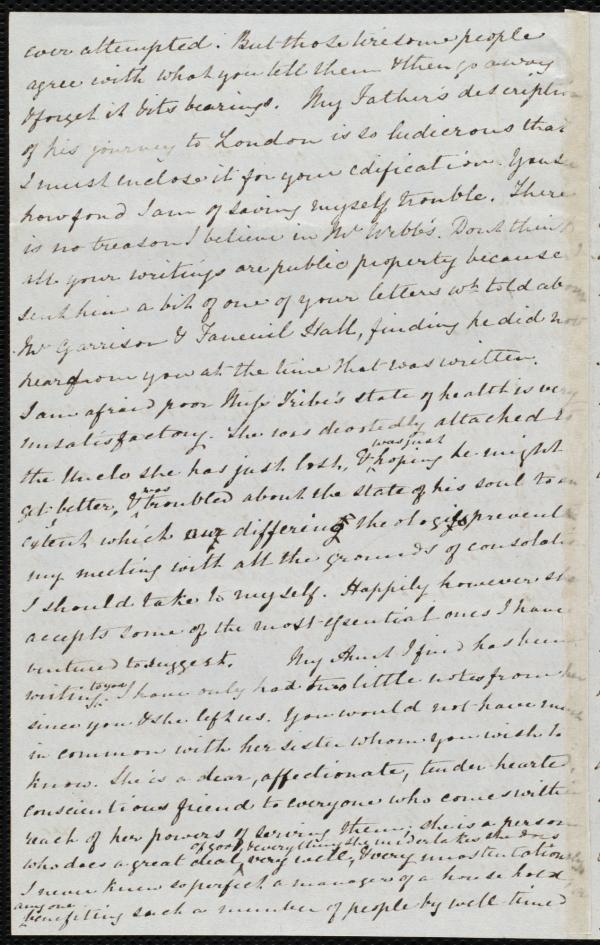 ever attempted. But those tiresome people
agree with what you tell them & then go away
& forget it & its bearings. My Father's description
of his journey to London is so ludicrous that
I must enclose it for your edification. You see
how fond I am of saving myself trouble. There
is no treason I believe in Mr Webb's. Dont think
all your writings are public property because I
sent him a bit of one of your letters wh told about
Mr Garrison & Faneuil Hall, finding he did not
hear from you at the time that was written.
I am afraid poor Miss Tribe's state of health is very
unsatisfactory. She was devotedly attached to
the Uncle she has just lost, & was just hoping he might
get better, & was troubled about the state of his soul to an
extent which our differing theologies prevent
my meeting with all the grounds of consolation
I should take to myself. Happily however she
accepts some of the most essential ones I have
ventured to suggest. My Aunt I find has been
writing to you. I have only had two little notes from her
since you & she left us. You would not have much
in common with her sister whom you wish to
know. She is a dear, affectionate, tender hearted,
conscientious friend to everyone who comes within
reach of her powers of serving them; she is a person
who does a great deal of good & everything she undertakes she does very well, & very unostentatiously
I never knew so perfect a manager of a household,
anyone benefiting such a number of people by well timed